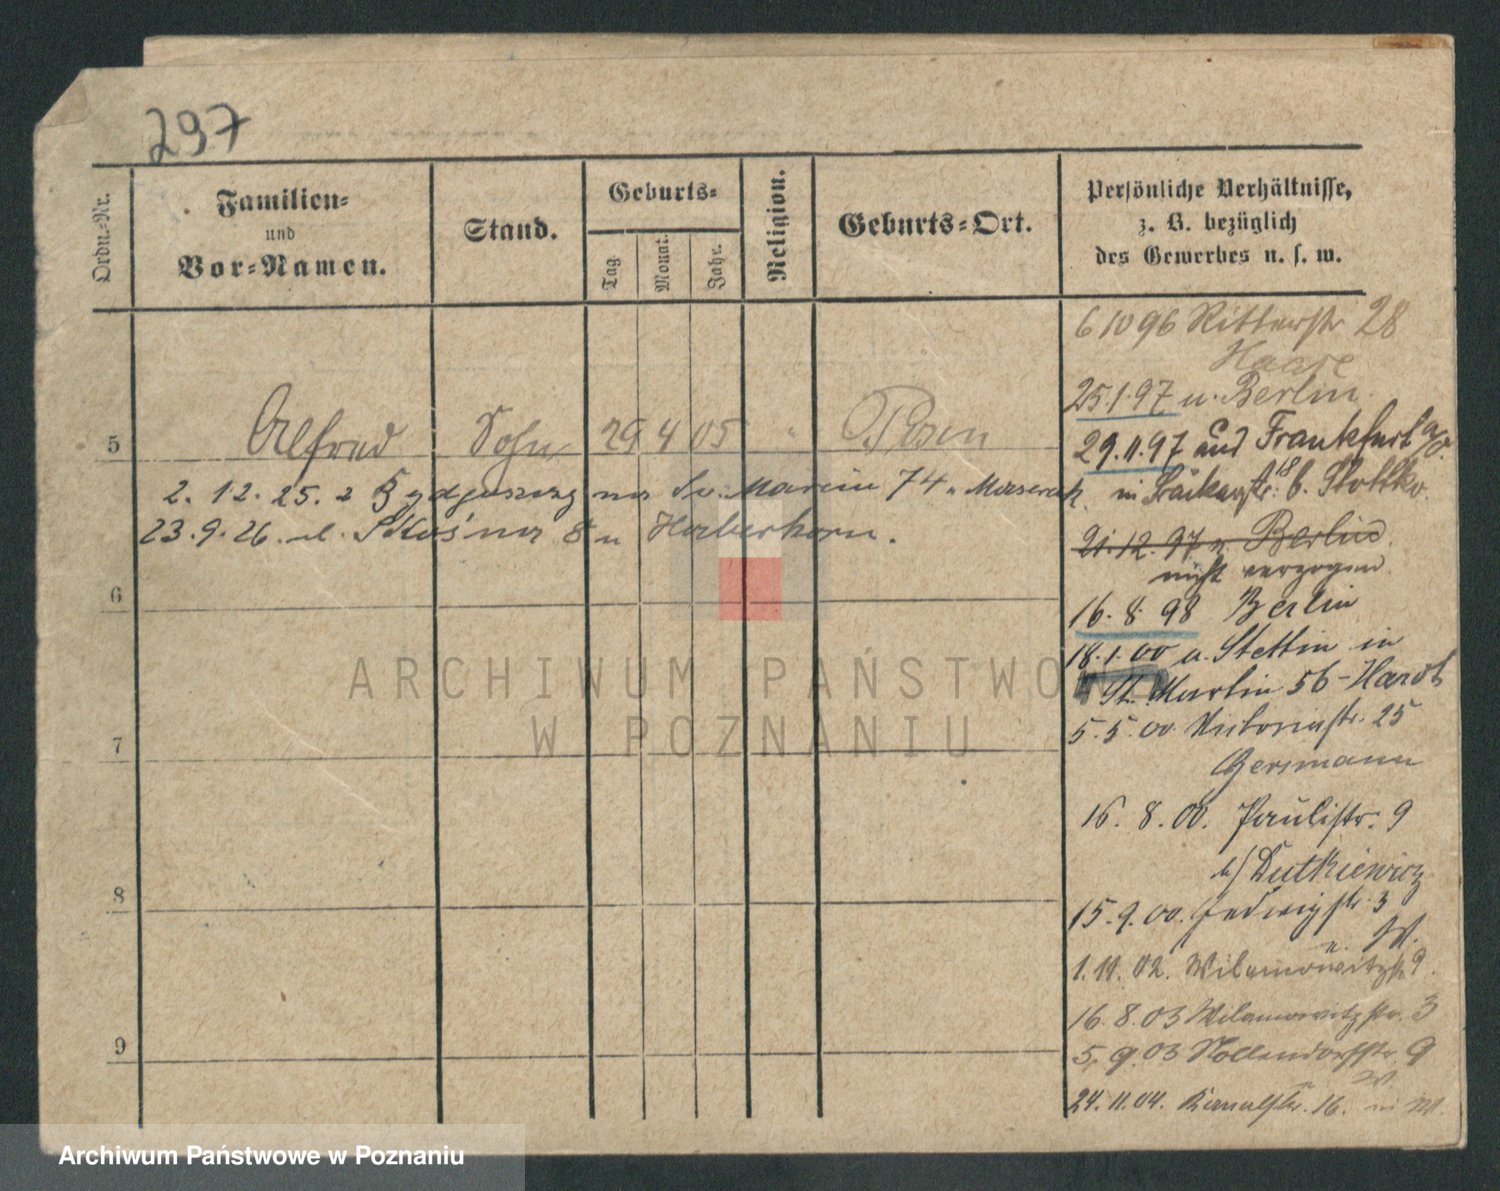 297
Ordn.-Nr.
Familien-
und
Vor-Namen.
Stand.
Geburts-
Tag.
Monat.
Jahr.
Religion.
Geburts-Ort.
Persönliche Verhältnisse,
z. B. bezüglich
des Gewerbes u. s. w.
5 Alfred Sohn 29 4 05 " Posen
2. 12. 25. z Bydgoszczy na Św. Marcin 74 u
23. 9. 26. ul. Skośna 8 u Haberkorn.
6
7
8
9
6 10 96 Ritterstr 28
Haase
25.1.97 u. Berlin.
29.11.97 aus Frankfurt a/O.
in 18 b.
21.12.97 n. Berlin.
nicht verzogen
16. 8. 98 Berlin
18.1.00 a. Stettin in
St. Martin 56 - Hardt
5. 5. 00 Victoriastr. 25
Gersmann
16. 8. 00. Paulistr. 9
b/ Dutkiewicz
15. 9. 00. Hedwigstr. 3
u. W.
1. 11. 02. Wilamowitzstr 9.
16. 8. 03 Wilamowitzstr. 3
5. 9. 03 Nollendorfstr. 9
W.
24. 11. 04. Kanalstr. 16. W.
ARCHIWUM PAŃSTWOWE
W POZNANIU
Archiwum Państwowe w Poznaniu